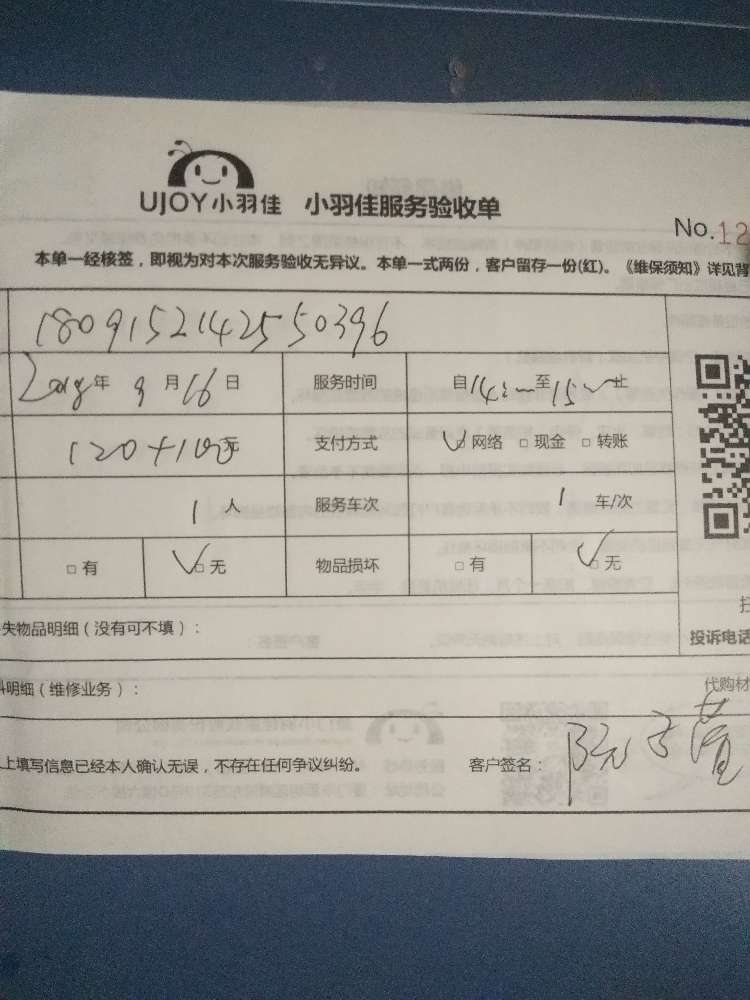 UJOY小羽佳 小羽佳服务验收单
No.12
本单一经核签，即视为对本次服务验收无异议。本单一式两份，客户留存一份(红)。《维保须知》详见背
1809152142550396
2018年9月16日 服务时间 自14:~至15:~止
120+100元 支付方式 ☑网络 □现金 □转账
1人 服务车次 1车/次
□有 ☑无 物品损坏 □有 ☑无
失物品明细（没有可不填）：
投诉电话
料明细（维修业务）： 代购材
上填写信息已经本人确认无误，不存在任何争议纠纷。 客户签名：阮子萱